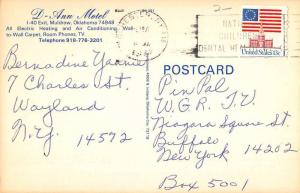 D-Ann Motel
I-40 Exit, Muldrow, Oklahoma 74948
All Electric Heating and Air Conditioning, Wall-
to-Wall Carpet, Room Phones, TV
Telephone 918-776-3201
Bernadine
7 Charles St.
Wayland
N.Y. 14572
NAT
CHILDREN
DENTAL HEALTH
United States 13c
POSTCARD
Pin Pal
W.G.R. T.V
Niagara Square St.
Buffalo
New York 14202
Box 5001